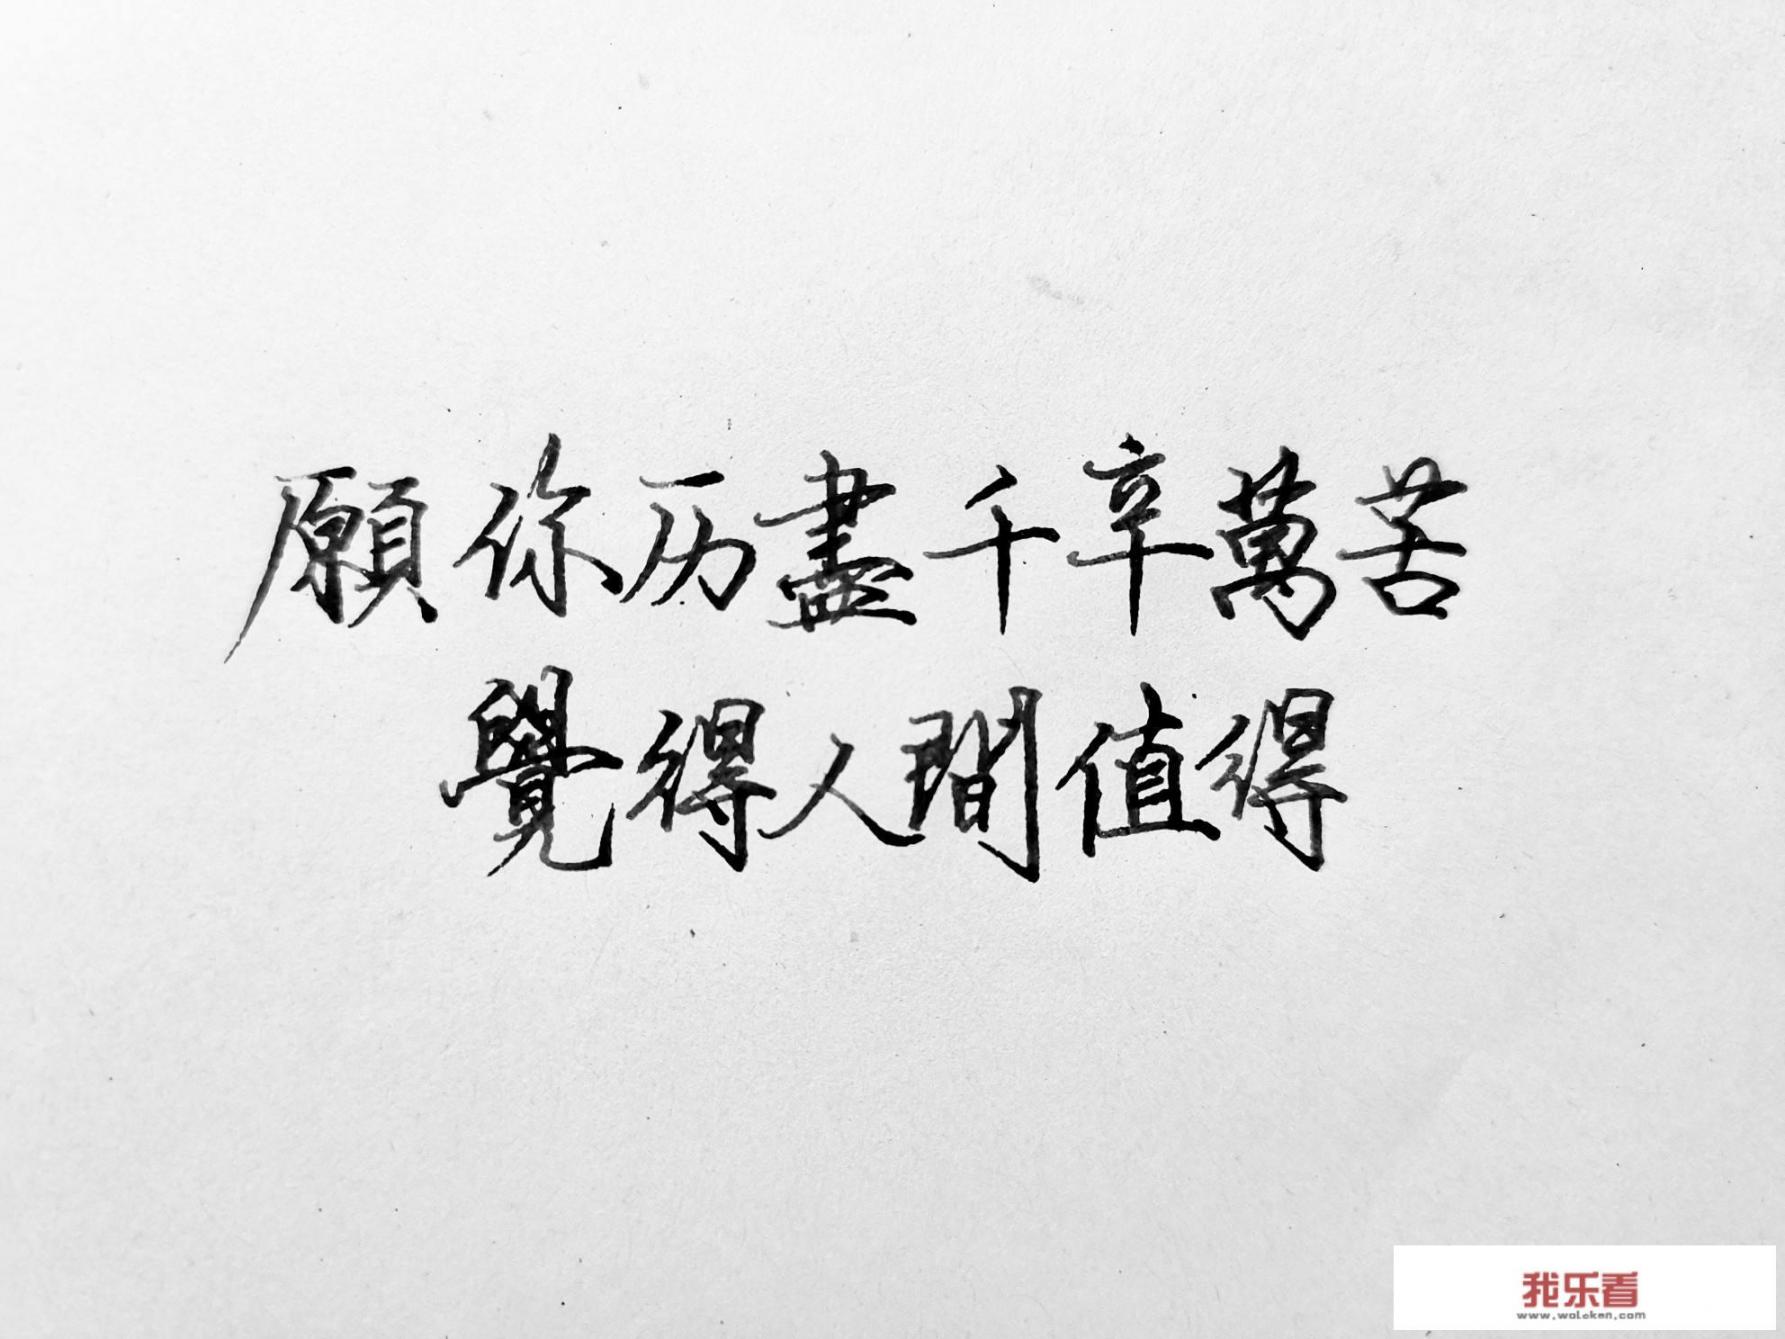 願你历盡千辛萬苦
覺得人間值得
我乐看
www.woleken.com